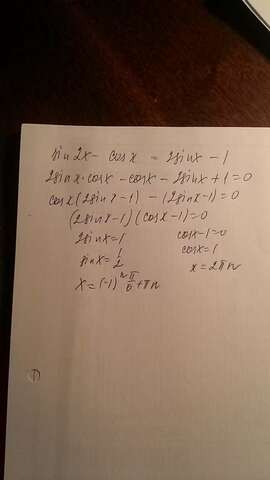 sin2x - cosx = 2sinx - 1
2sinx·cosx - cosx - 2sinx + 1 = 0
cosx(2sinx-1) - (2sinx-1) = 0
(2sinx-1)(cosx-1) = 0
2sinx=1 cosx-1=0
sinx= 1/2 cosx=1
x = 2πn
x = (-1)^n π/6 + πn